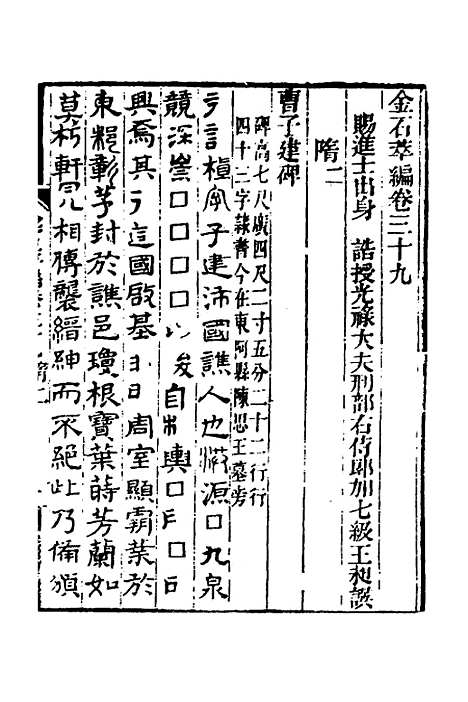 金石萃編卷三十九
賜進士出身　誥授光祿大夫刑部右侍郎加七級王昶譔
隋二
曹子建碑
碑高七尺廣四尺二寸五分二十二行行
四十三字隸書今在東阿縣陳思王墓旁
諱植字子建沛國譙人也源□九泉
競深□□□□自□□□
興焉其□這國啟基□日周室顯霸業於
東□彰芓封於譙邑瓊根寶葉蒔芳蘭如
莫朽軒冠相傳襲縉紳而不絕此乃備頒